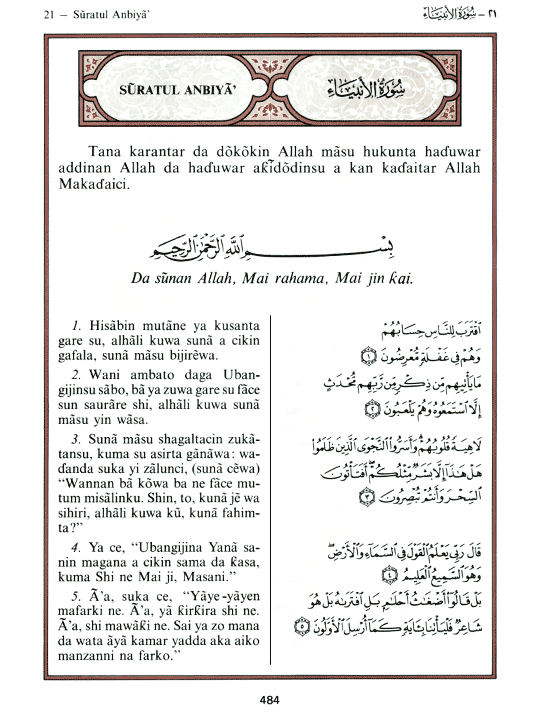 21 — Sũratul Anbiyã’
٢١ — سُورَةُ الأَنبِيَاء
SŨRATUL ANBIYÃ’
سُورَةُ الأَنبِيَاء
Tana karantar da dõkõkin Allah mãsu hukunta haɗuwar
addinan Allah da haɗuwar aƙĩdõdinsu a kan kaɗaitar Allah
Makaɗaici.
بِسْمِ اللَّهِ الرَّحْمَٰنِ الرَّحِيمِ
Da sũnan Allah, Mai rahama, Mai jin ƙai.
1. Hisãbin mutãne ya kusanta
gare su, alhãli kuwa sunã a cikin
gafala, sunã mãsu bijirẽwa.
2. Wani ambato daga Uban-
gijinsu sãbo, bã ya zuwa gare su fãce
sun saurãre shi, alhãli kuwa sunã
mãsu yin wãsa.
3. Sunã mãsu shagaltacin zukã-
tansu, kuma su asirta gãnãwa: wa-
ɗanda suka yi zãlunci, (sunã cẽwa)
“Wannan bã kõwa ba ne fãce mu-
tum misãlinku. Shin, to, kunã jẽ wa
sihiri, alhãli kuwa kũ, kunã fahim-
ta?”
4. Ya ce, “Ubangijina Yanã sa-
nin magana a cikin sama da ƙasa,
kuma Shi ne Mai ji, Masani.”
5. Ã’a, suka ce, “Yãye-yãyen
mafarki ne. Ã’a, yã ƙirƙira shi ne.
Ã’a, shi mawãƙi ne. Sai ya zo mana
da wata ãyã kamar yadda aka aiko
manzanni na farko.”
ٱقْتَرَبَ لِلنَّاسِ حِسَابُهُمْ
وَهُمْ فِى غَفْلَةٍ مُّعْرِضُونَ ١
مَا يَأْتِيهِم مِّن ذِكْرٍ مِّن رَّبِّهِم مُّحْدَثٍ
إِلَّا ٱسْتَمَعُوهُ وَهُمْ يَلْعَبُونَ ٢
لَاهِيَةً قُلُوبُهُمْ وَأَسَرُّوا۟ ٱلنَّجْوَى ٱلَّذِينَ ظَلَمُوا۟
هَلْ هَٰذَآ إِلَّا بَشَرٌ مِّثْلُكُمْ أَفَتَأْتُونَ
ٱلسِّحْرَ وَأَنتُمْ تُبْصِرُونَ ٣
قَالَ رَبِّى يَعْلَمُ ٱلْقَوْلَ فِى ٱلسَّمَآءِ وَٱلْأَرْضِ
وَهُوَ ٱلسَّمِيعُ ٱلْعَلِيمُ ٤
بَلْ قَالُوٓا۟ أَضْغَٰثُ أَحْلَٰمٍۭ بَلِ ٱفْتَرَىٰهُ بَلْ هُوَ
شَاعِرٌ فَلْيَأْتِنَا بِـَٔايَةٍ كَمَآ أُرْسِلَ ٱلْأَوَّلُونَ ٥
484